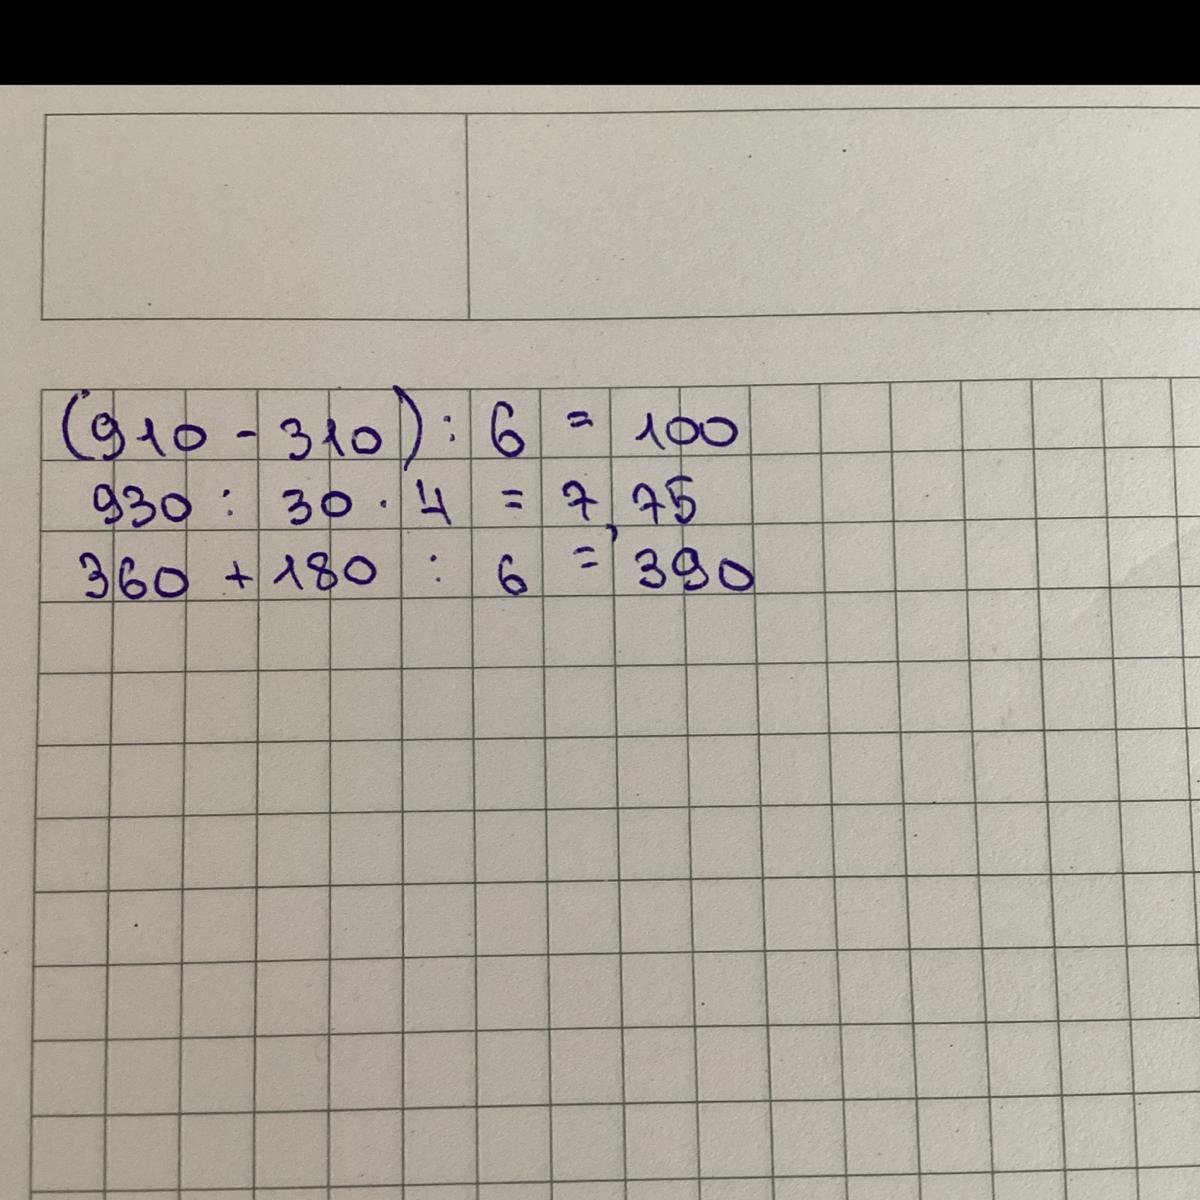 (910 - 310) : 6 = 100
930 : 30 · 4 = 7,75
360 + 180 : 6 = 390